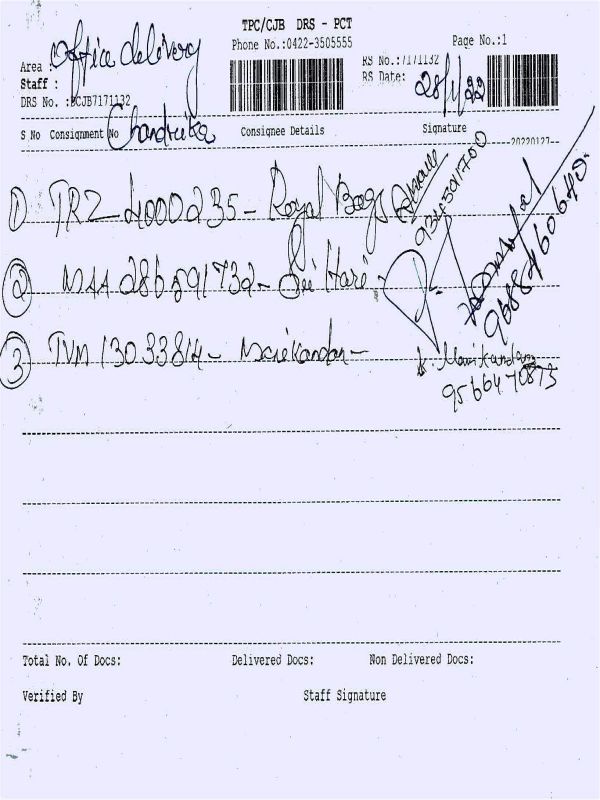 TPC/CJB DRS - PCT
Phone No.:0422-3505555
Page No.:1
Area : Office delivery
Staff :
DRS No. :DCJB7171132
RS No.:7171132
RS Date: 28/1/22
Chandrika
S No Consignment No Consignee Details Signature
20220127
1) TRZ 4000235 - Royal Bags
2) MAA 286591732 - Sri Hari -
9688460640
3) TVM 13033814 - Manikandan -
Manikandan
9566470873
Total No. Of Docs: Delivered Docs: Non Delivered Docs:
Verified By Staff Signature